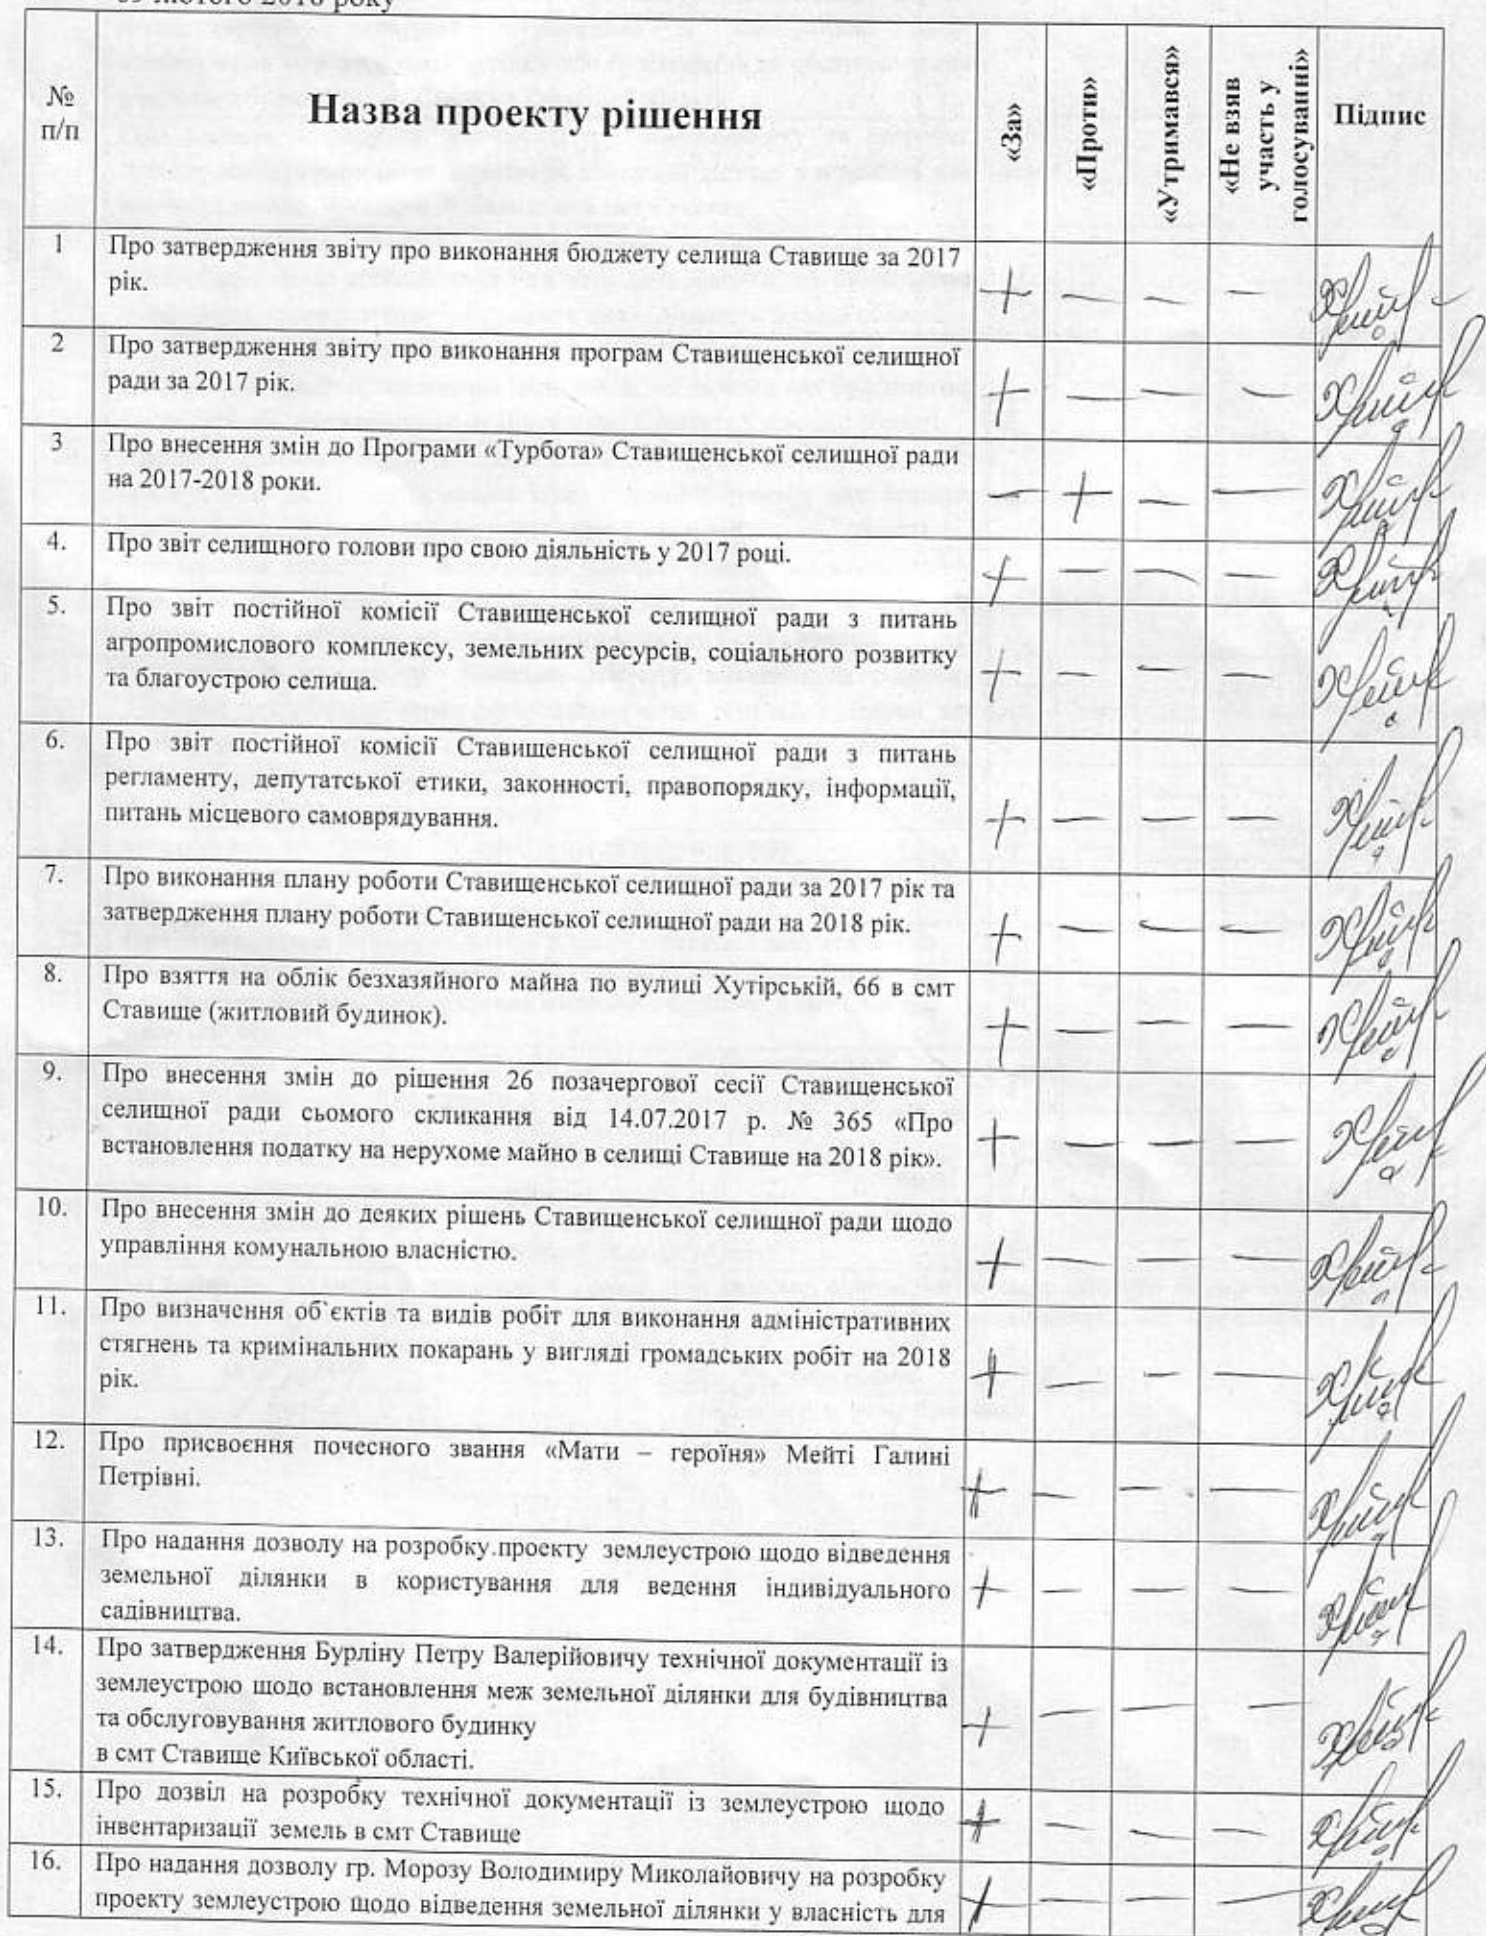 лютого 2018 року
№ п/п
Назва проекту рішення
«За»
«Проти»
«Утримався»
«Не взяв участь у голосуванні»
Підпис
1 Про затвердження звіту про виконання бюджету селища Ставище за 2017
рік. + — — —
2 Про затвердження звіту про виконання програм Ставищенської селищної
ради за 2017 рік. + — — —
3 Про внесення змін до Програми «Турбота» Ставищенської селищної ради
на 2017-2018 роки. — + — —
4. Про звіт селищного голови про свою діяльність у 2017 році. + — — —
5. Про звіт постійної комісії Ставищенської селищної ради з питань
агропромислового комплексу, земельних ресурсів, соціального розвитку
та благоустрою селища. + — — —
6. Про звіт постійної комісії Ставищенської селищної ради з питань
регламенту, депутатської етики, законності, правопорядку, інформації,
питань місцевого самоврядування. + — — —
7. Про виконання плану роботи Ставищенської селищної ради за 2017 рік та
затвердження плану роботи Ставищенської селищної ради на 2018 рік. + — — —
8. Про взяття на облік безхазяйного майна по вулиці Хутірській, 66 в смт
Ставище (житловий будинок). + — — —
9. Про внесення змін до рішення 26 позачергової сесії Ставищенської
селищної ради сьомого скликання від 14.07.2017 р. № 365 «Про
встановлення податку на нерухоме майно в селищі Ставище на 2018 рік». + — — —
10. Про внесення змін до деяких рішень Ставищенської селищної ради щодо
управління комунальною власністю. + — — —
11. Про визначення об`єктів та видів робіт для виконання адміністративних
стягнень та кримінальних покарань у вигляді громадських робіт на 2018
рік. + — — —
12. Про присвоєння почесного звання «Мати – героїня» Мейті Галині
Петрівні. + — — —
13. Про надання дозволу на розробку.проекту землеустрою щодо відведення
земельної ділянки в користування для ведення індивідуального
садівництва. + — — —
14. Про затвердження Бурліну Петру Валерійовичу технічної документації із
землеустрою щодо встановлення меж земельної ділянки для будівництва
та обслуговування житлового будинку
в смт Ставище Київської області. + — — —
15. Про дозвіл на розробку технічної документації із землеустрою щодо
інвентаризації земель в смт Ставище + — — —
16. Про надання дозволу гр. Морозу Володимиру Миколайовичу на розробку
проекту землеустрою щодо відведення земельної ділянки у власність для + — — —